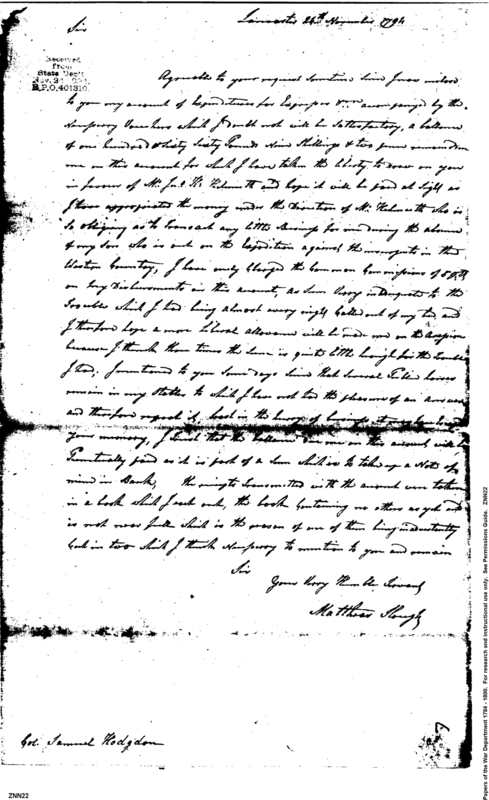 Lancaster 24th November 1794
Sir
Received
from
State Dep't
B.P.O. 401310
Agreeable to your request sometime since I now inclose
to you my account of Expenditures for Expresses accompanyed by the
necessary Vouchers which I doubt not will be Satisfactory, a ballance
of one hundred & Sixty Pounds Nine Shillings & two pence
me on this account for which I have taken the liberty to draw on you
in favour of Mr. and hope it will be paid at Sight as
I have appropriated the money under the Direction of Mr. who is
So obliging as to transact any little for me during the absence
of my Son who is out on the Expedition against the insurgents in the
Western Country, I have only Charged the Common Commissions of
on my Disbursements in this account, as Sum Very inadequate to the
Trouble which I had being almost every night Called out of my bed, and
I therefore hope a more Liberal allowance will be made me on the
because I think three times the Sum is quite little enough for the Trouble
I had, I mentioned to you Some days Since that Several Publick horses
remain in my Stables to which I have not had the pleasure of an answer
and therefore request it, in the hurry of business it may have
your memory, I trust that the ballance due me on this account will be
Punctually paid as it is part of a Sum which is to take up a Note of
mine in Bank, the receipts transmitted with the account were taken
in a book which I sent out, the book Containing no others as yet and
is not near full which is the reason of one of them being inadvertently
Cut in two which I think necessary to mention to you and remain
Sir
Your Very Humble Servant
Matthias Slough
Col. Samuel Hodgdon
ZNN22
Papers of the War Department 1784 - 1800. For research and instructional use only. See Permissions Guide. ZNN22